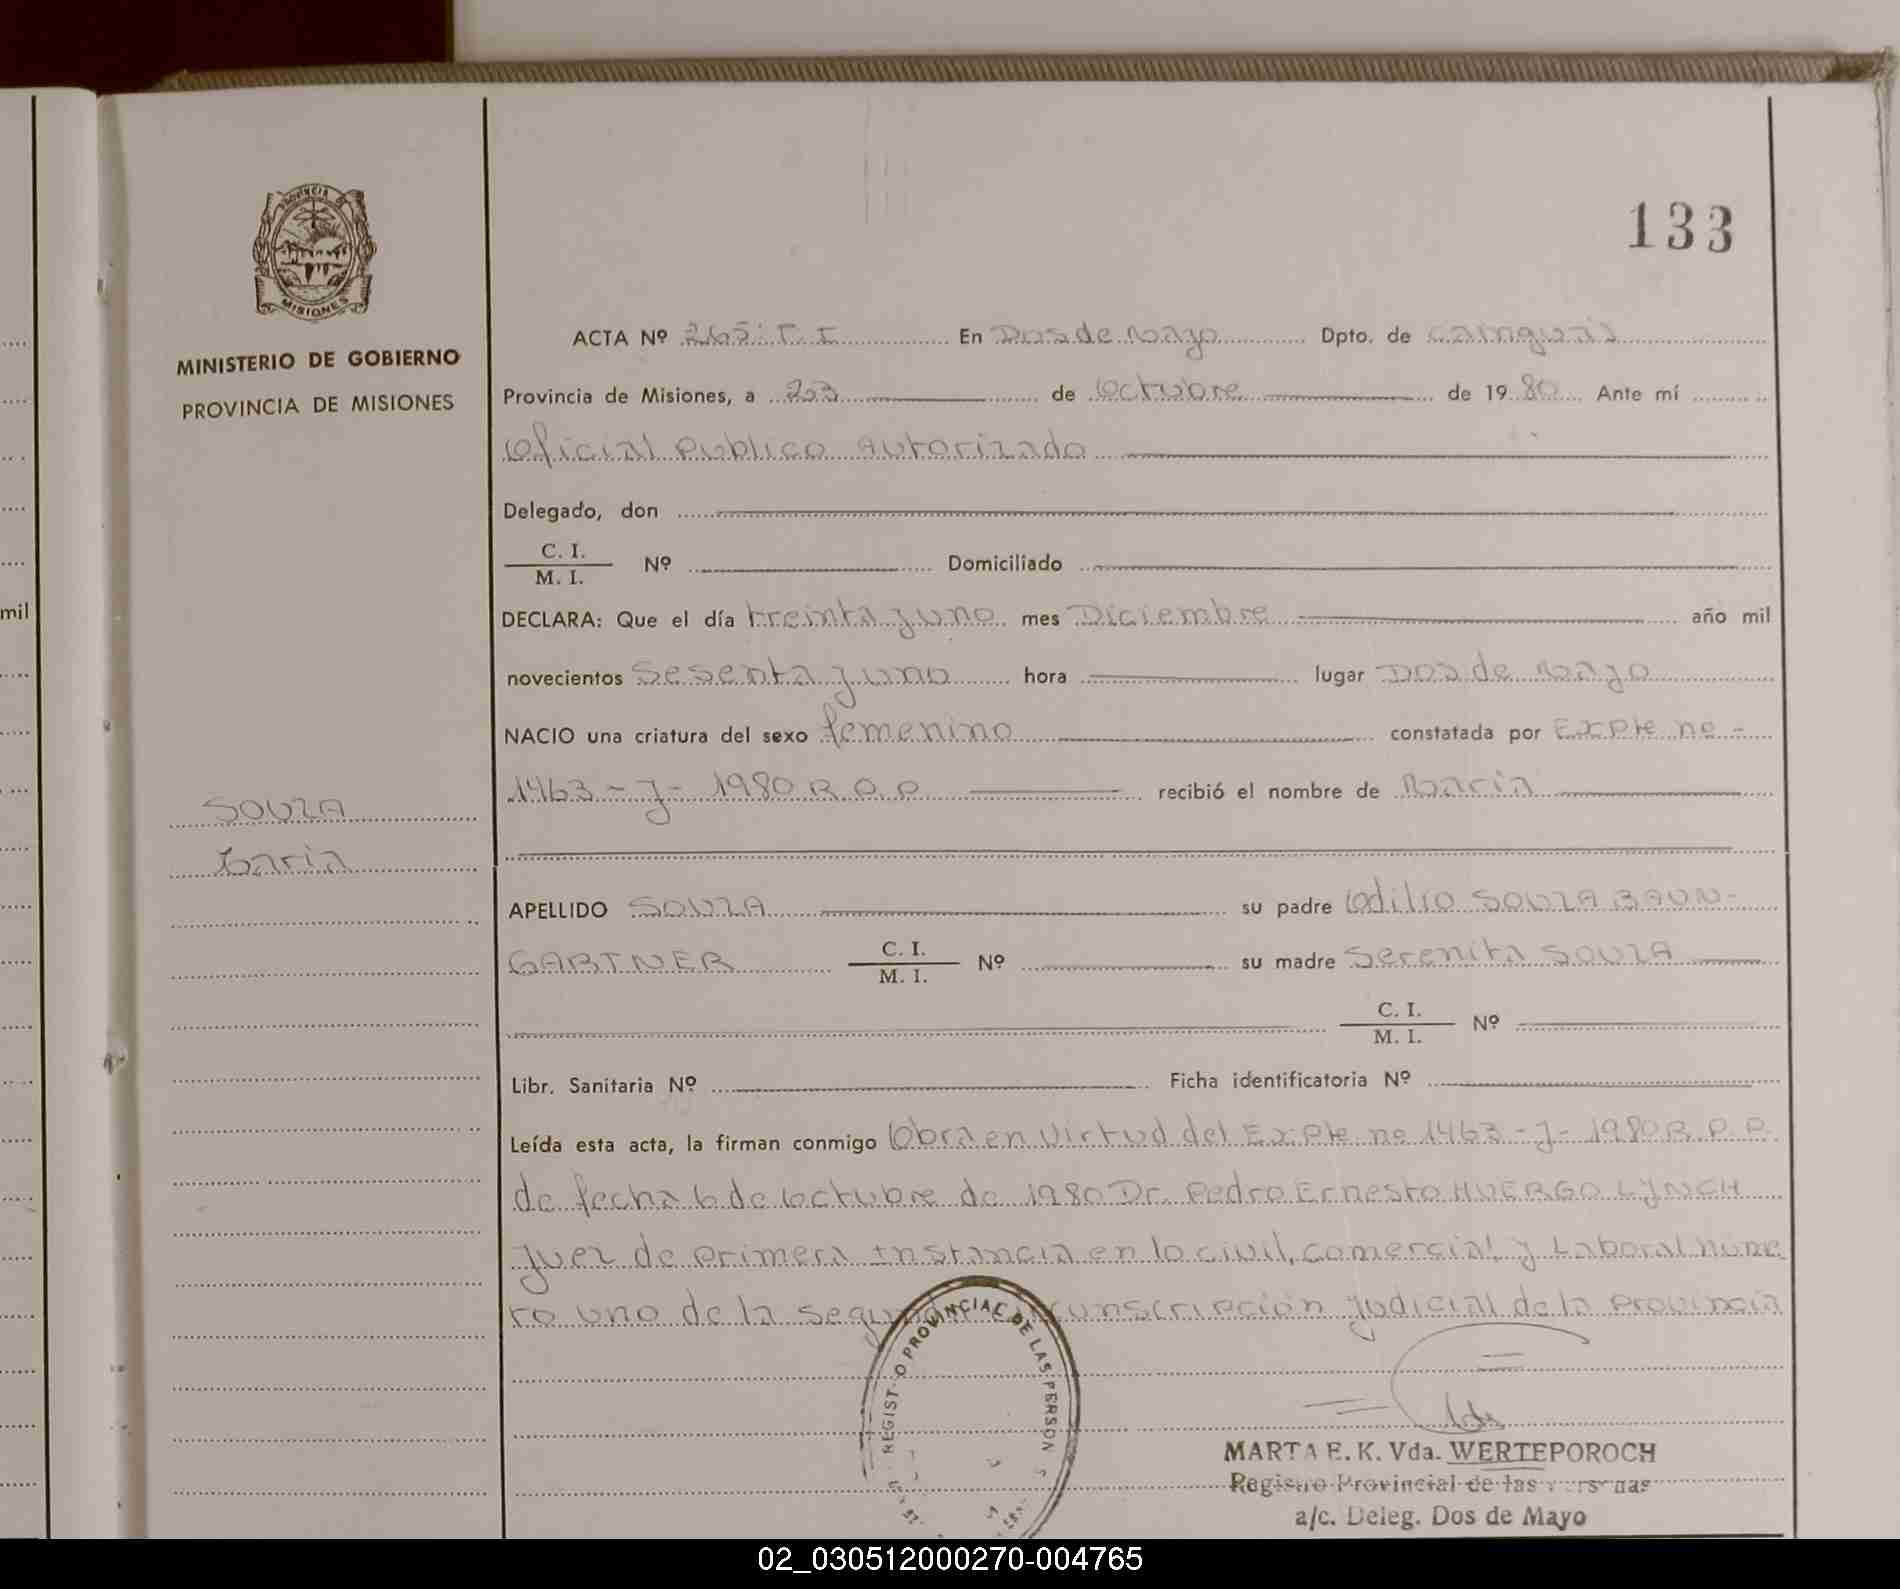 133
PROVINCIA DE
MISIONES
MINISTERIO DE GOBIERNO
PROVINCIA DE MISIONES
SOUZA
Maria
mil
ACTA Nº 265: T. I En Dos de Mayo Dpto. de Cainguás
Provincia de Misiones, a 23 de Octubre de 19 80 Ante mí
Oficial Publico Autorizado
Delegado, don
C. I.
M. I. Nº Domiciliado
DECLARA: Que el día treinta y uno mes Diciembre año mil
novecientos Sesenta y uno hora lugar Dos de Mayo
NACIO una criatura del sexo femenino constatada por Expte no -
1463 - J - 1980 R. P. P. recibió el nombre de Maria
APELLIDO SOUZA su padre Odilio SOUZA BAUN-
GARTNER C. I. M. I. Nº su madre Serenita SOUZA
C. I. M. I. Nº
Libr. Sanitaria Nº Ficha identificatoria Nº
Leída esta acta, la firman conmigo Obra en Virtud del Expte no 1463 - J - 1980 R. P. P.
de fecha 6 de Octubre de 1980 Dr. Pedro Ernesto HUERGO LYNCH
Juez de Primera Instancia en lo civil, comercial y Laboral nume
ro uno de la segunda unscripción Judicial de la Provincia
REGIST O PROVINCIAL DE LAS PERSON S
MARTA E. K. Vda. WERTEPOROCH
Registro Provincial de las Personas
a/c. Deleg. Dos de Mayo
02_030512000270-004765